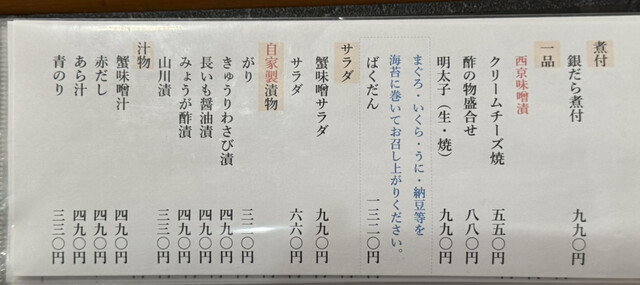 煮付
銀だら煮付 九九〇円
一品
西京味噌漬
クリームチーズ焼 五五〇円
酢の物盛合せ 八八〇円
明太子（生・焼） 九九〇円
まぐろ・いくら・うに・納豆等を
海苔に巻いてお召し上がりください。
ばくだん 一三二〇円
サラダ
蟹味噌サラダ 九九〇円
サラダ 六六〇円
自家製漬物
がり 三三〇円
きゅうりわさび漬 四九〇円
長いも醤油漬 四九〇円
みょうが酢漬 四九〇円
山川漬 三三〇円
汁物
蟹味噌汁 四九〇円
赤だし 四九〇円
あら汁 四九〇円
青のり 三三〇円